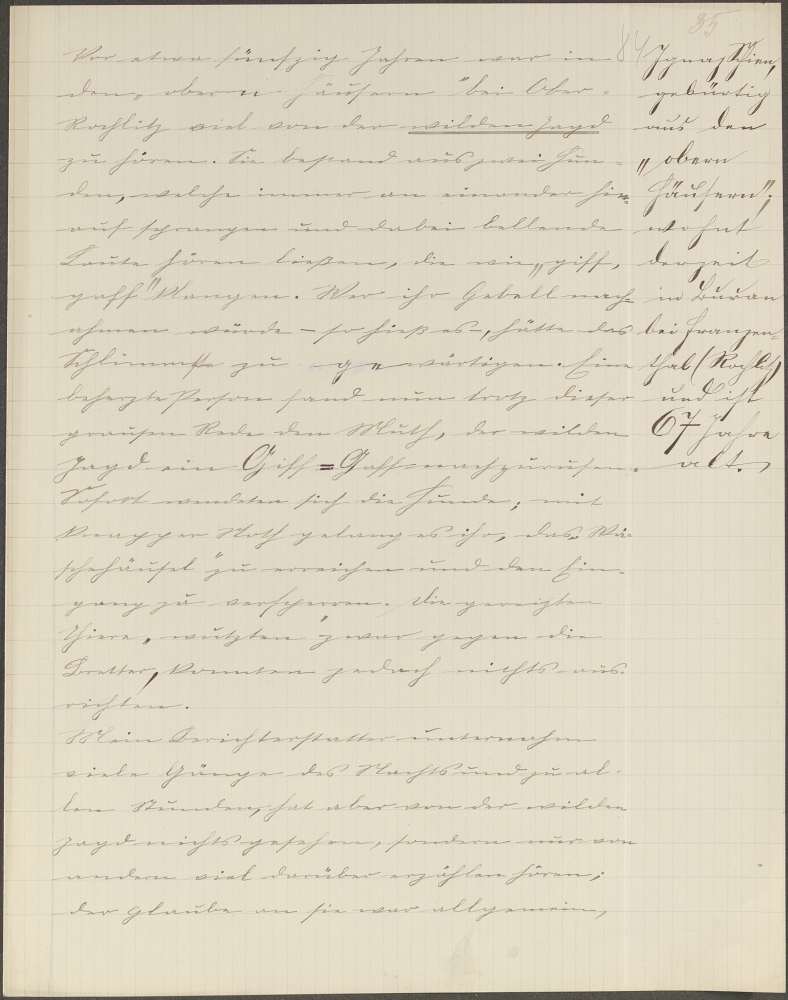 35
84
Vor etwa fünfzig Jahren war in
den „obern Häusern" bei Ober-
Rochlitz viel von der wilden Jagd
zu hören. Sie bestand aus zwei Hun-
den, welche immer an einander hin-
auf sprangen und dabei bellende
Laute hören ließen, die wie „giff,
gaff" klangen. Wer ihr Gebell nach-
ahmen würde – so hieß es –, hätte das
Schlimmste zu gewärtigen. Eine
beherzte Person fand nun trotz dieser
grausen Rede den Muth, der wilden
Jagd ein Giff=Gaff nachzurufen.
Sofort wendeten sich die Hunde; mit
knapper Noth gelang es ihr, das „Wä-
schehäusel" zu erreichen und den Ein-
gang zu versperren. Die gereizten
Thiere „wutzten" zwar gegen die
Bretter, konnten jedoch nichts aus-
richten.
Mein Berichterstatter unternahm
viele Gänge des Nachts und zu al-
len Stunden, hat aber von der wilden
Jagd nichts gesehen, sondern nur von
andern viel darüber erzählen hören;
der Glaube an sie war allgemein,
Ignaz
gebürtig
aus den
„obern
Häusern";
wohnt
derzeit
in Buran
bei Franzen-
thal (Rochlitz)
und ist
67 Jahre
alt.